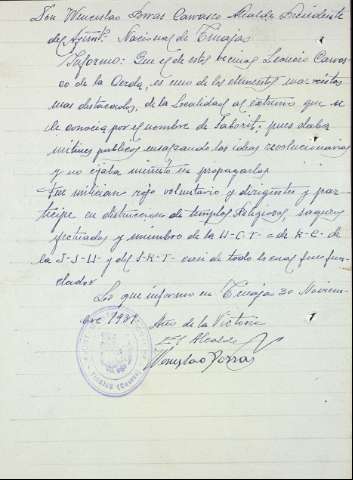 Don Wenceslao Porras Carrasco Alcalde Presidente
del Ayunt. Nacional de Tinajas
Informo: Que el de este vecino Leoncio Carras
co de la Cerda, es uno de los elementos marxistas
mas destacados, de la Localidad al extremo que se
le conocia por el nombre de Saborit; pues daba
mitines publicos ensalzando las ideas revolucionarias
y no cejaba minuto en propagarlas
Fue miliciano rojo voluntario y dirigente y par-
ticipe en destrucciones de templos Religiosos, saqueos
y miembro de la U-G-T- de R-C- de
la J-S-U- y del S-R-I- casi de todo lo cual fue fun-
dador
Lo que informo en Tinajas 30 Noviem-
bre 1939 Año de la Victoria
El Alcalde
Wenceslao Porras
TINAJAS (Cuenca)